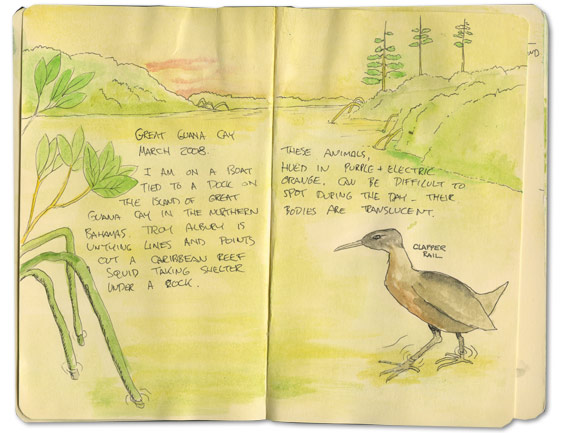 GREAT GUANA CAY
MARCH 2008.
I AM ON A BOAT
TIED TO A DOCK ON
THE ISLAND OF GREAT
GUANA CAY IN THE NORTHERN
BAHAMAS. TROY ALBURY IS
UNTYING LINES AND POINTS
OUT A CARIBBEAN REEF
SQUID TAKING SHELTER
UNDER A ROCK.
THESE ANIMALS,
HUED IN PURPLE + ELECTRIC
ORANGE, CAN BE DIFFICULT TO
SPOT DURING THE DAY - THEIR
BODIES ARE TRANSLUCENT.
CLAPPER
RAIL